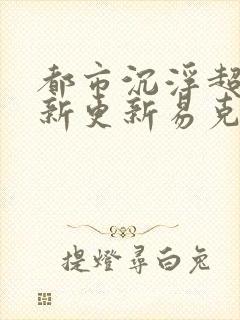 都市沉浮超
新更新易克
提燈尋白兔